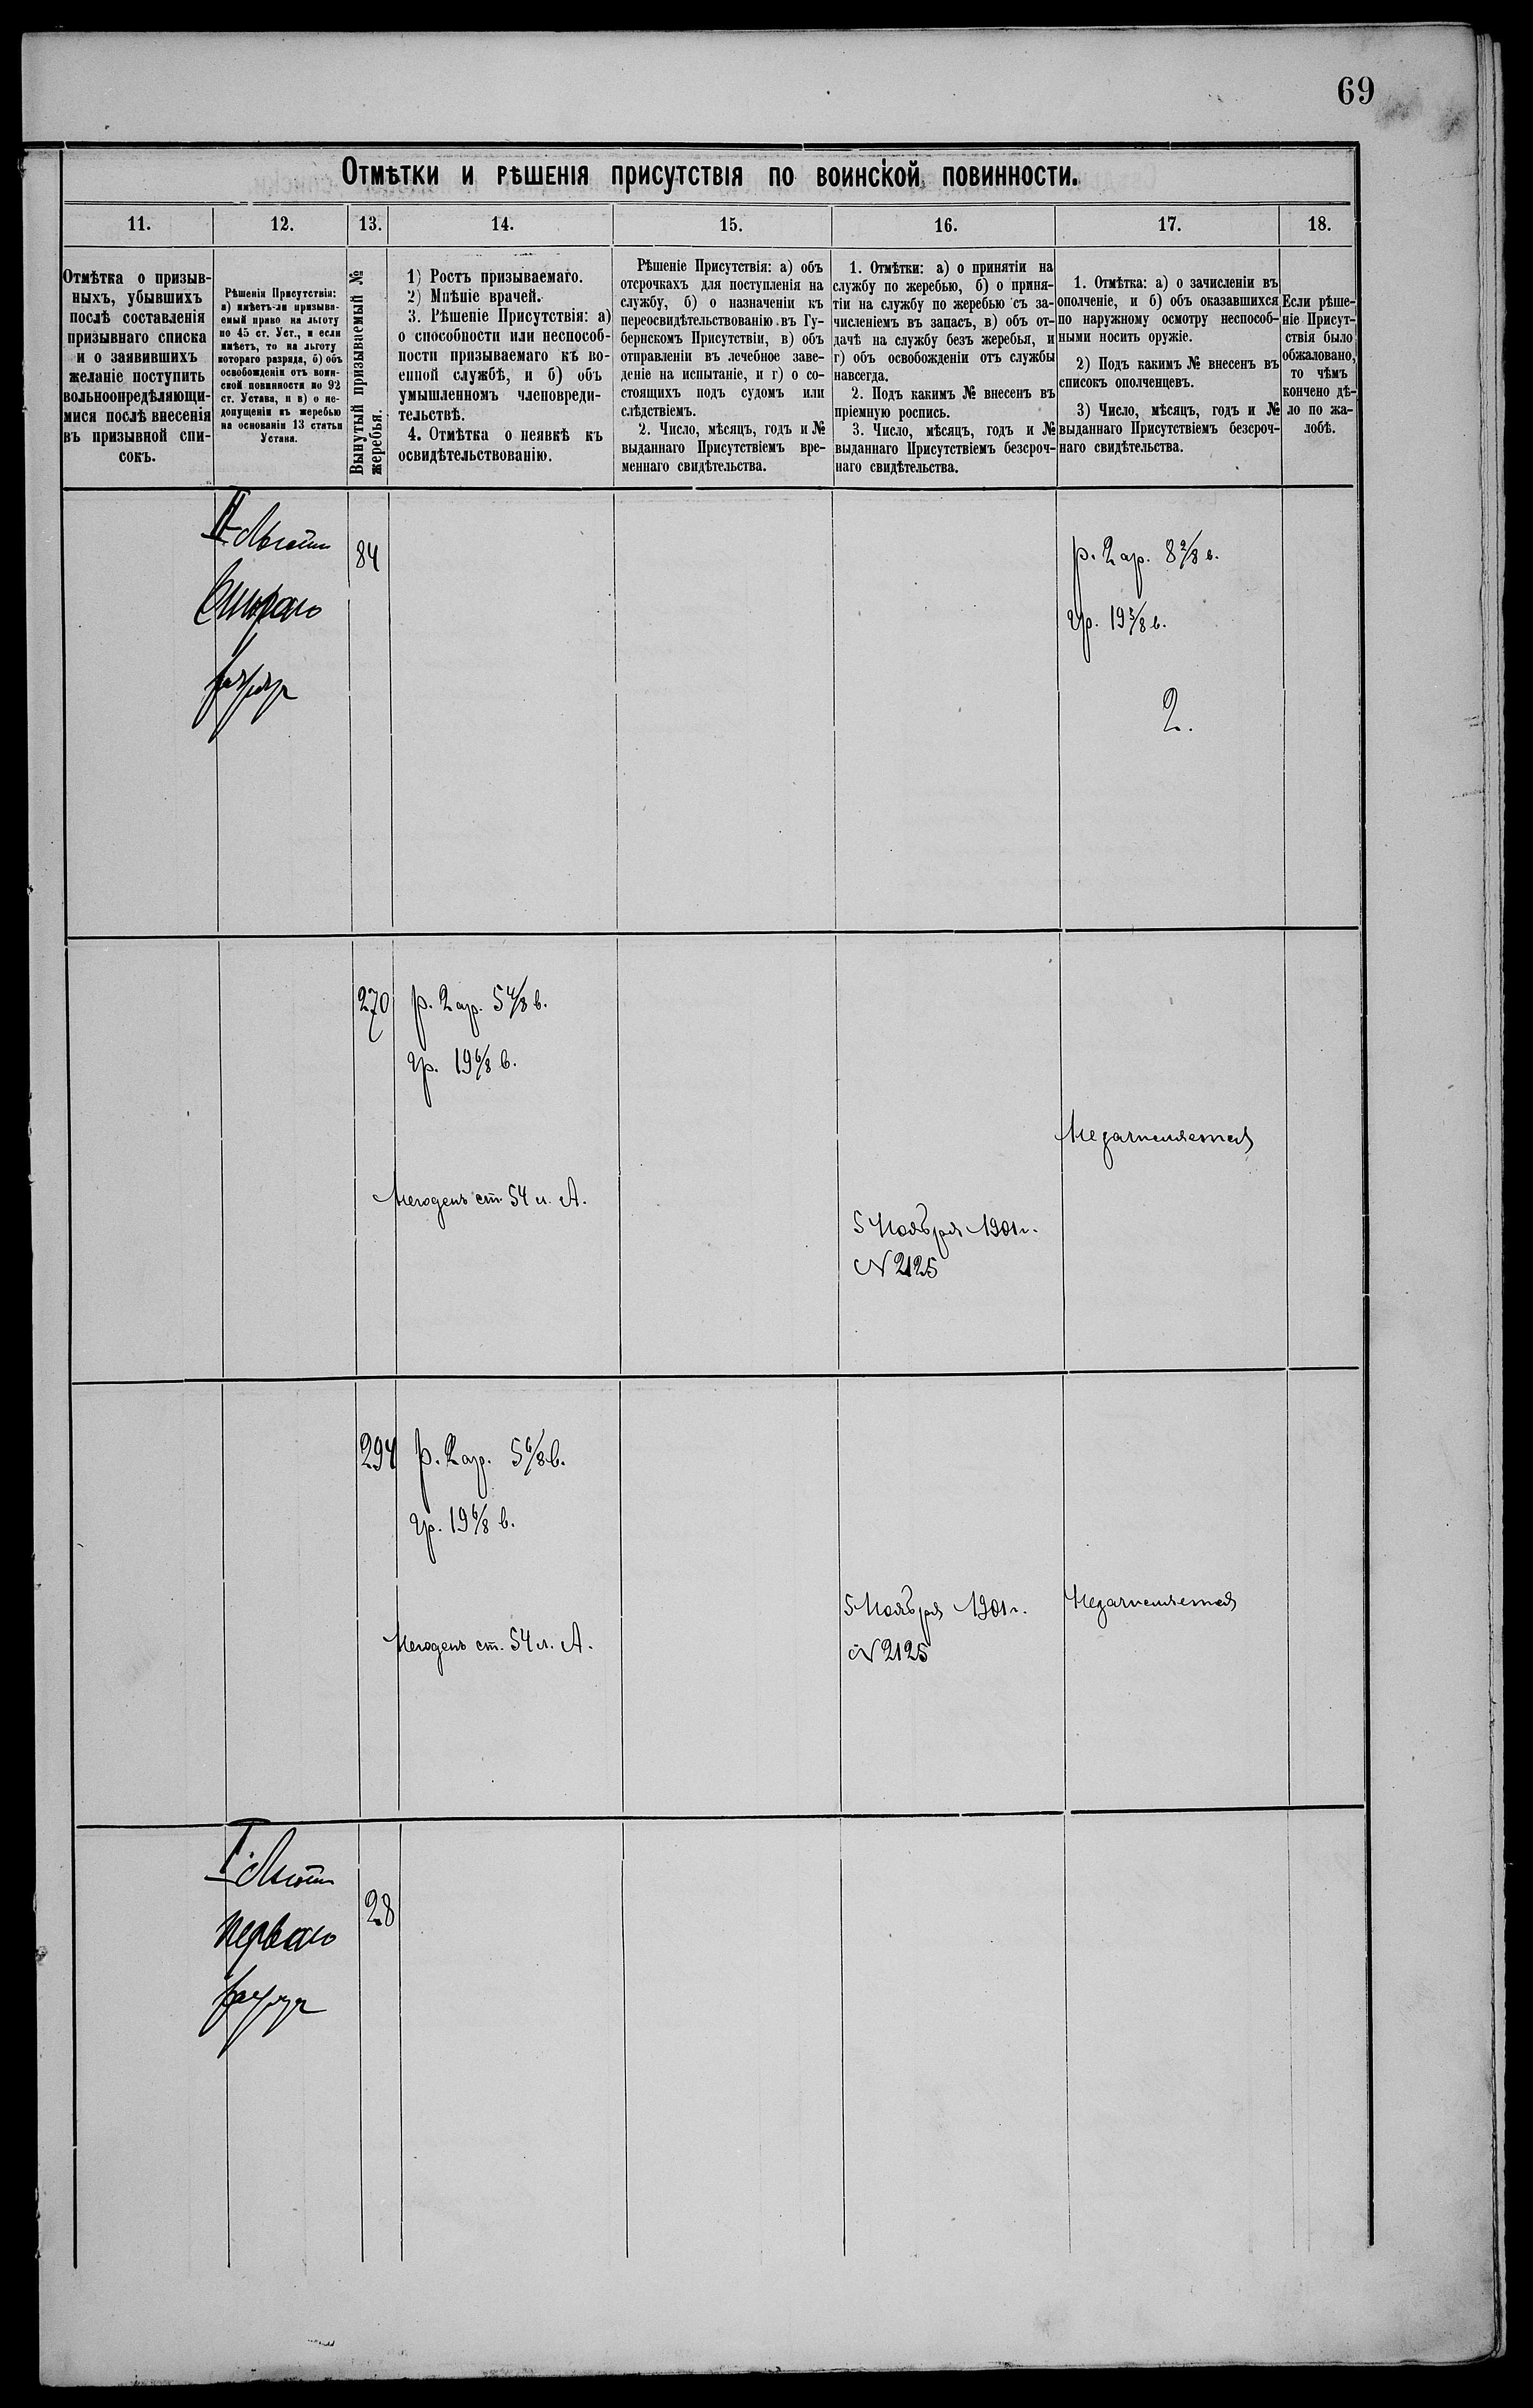 69
Отмѣтки и рѣшенія присутствія по воинской повинности.
11.
12.
13.
14.
15.
16.
17.
18.
Отмѣтка о призыв-
ныхъ, убывшихъ
послѣ составленія
призывнаго списка
и о заявившихъ
желаніе поступить
вольноопредѣляющи-
мися послѣ внесенія
въ призывной спи-
сокъ.
Рѣшенія Присутствія:
а) имѣетъ-ли призыва-
емый право на льготу
по 45 ст. Уст., и если
имѣетъ, то на льготу
котораго разряда, б) объ
освобожденіи отъ воин-
ской повинности по 92
ст. Устава, и в) о не-
допущеніи къ жеребью
на основаніи 13 статьи
Устава.
Вынутый призываемый №
жеребья.
1) Ростъ призываемаго.
2) Мнѣніе врачей.
3. Рѣшеніе Присутствія: а)
о способности или неспособ-
ности призываемаго къ во-
енной службѣ, и б) объ
умышленномъ членовреди-
тельствѣ.
4. Отмѣтка о неявкѣ къ
освидѣтельствованію.
Рѣшеніе Присутствія: а) объ
отсрочкахъ для поступленія на
службу, б) о назначеніи къ
переосвидѣтельствованію въ Гу-
бернскомъ Присутствіи, в) объ
отправленіи въ лечебное заве-
деніе на испытаніе, и г) о со-
стоящихъ подъ судомъ или
слѣдствіемъ.
2. Число, мѣсяцъ, годъ и №
выданнаго Присутствіемъ вре-
меннаго свидѣтельства.
1. Отмѣтки: а) о принятіи на
службу по жеребью, б) о приня-
тіи на службу по жеребью съ за-
численіемъ въ запасъ, в) объ от-
дачѣ на службу безъ жеребья, и
г) объ освобожденіи отъ службы
навсегда.
2. Подъ какимъ № внесенъ въ
пріемную роспись.
3. Число, мѣсяцъ, годъ и №
выданнаго Присутствіемъ безсроч-
наго свидѣтельства.
1. Отмѣтка: а) о зачисленіи въ
ополченіе, и б) объ оказавшихся
по наружному осмотру неспособ-
ными носить оружіе.
2) Подъ какимъ № внесенъ въ
списокъ ополченцевъ.
3) Число, мѣсяцъ, годъ и №
выданнаго Присутствіемъ безсроч-
наго свидѣтельства.
Если рѣше-
ніе Присут-
ствія было
обжаловано,
то чѣмъ
кончено дѣ-
ло по жа-
лобѣ.
II Льготы
второго
разряда
84
р. 2 ар. 8 2/8 в.
гр. 19 3/8 в.
2.
270
р. 2 ар. 5 4/8 в.
гр. 19 6/8 в.
Негоденъ ст. 54 л. А.
5 Ноября 1901 г.
N 2125
Незачисляется
294
р. 2 ар. 5 6/8 в.
гр. 19 6/8 в.
Негоденъ ст. 54 л. А.
5 Ноября 1901 г.
N 2125
Незачисляется
I Льготы
перваго
разряда
28